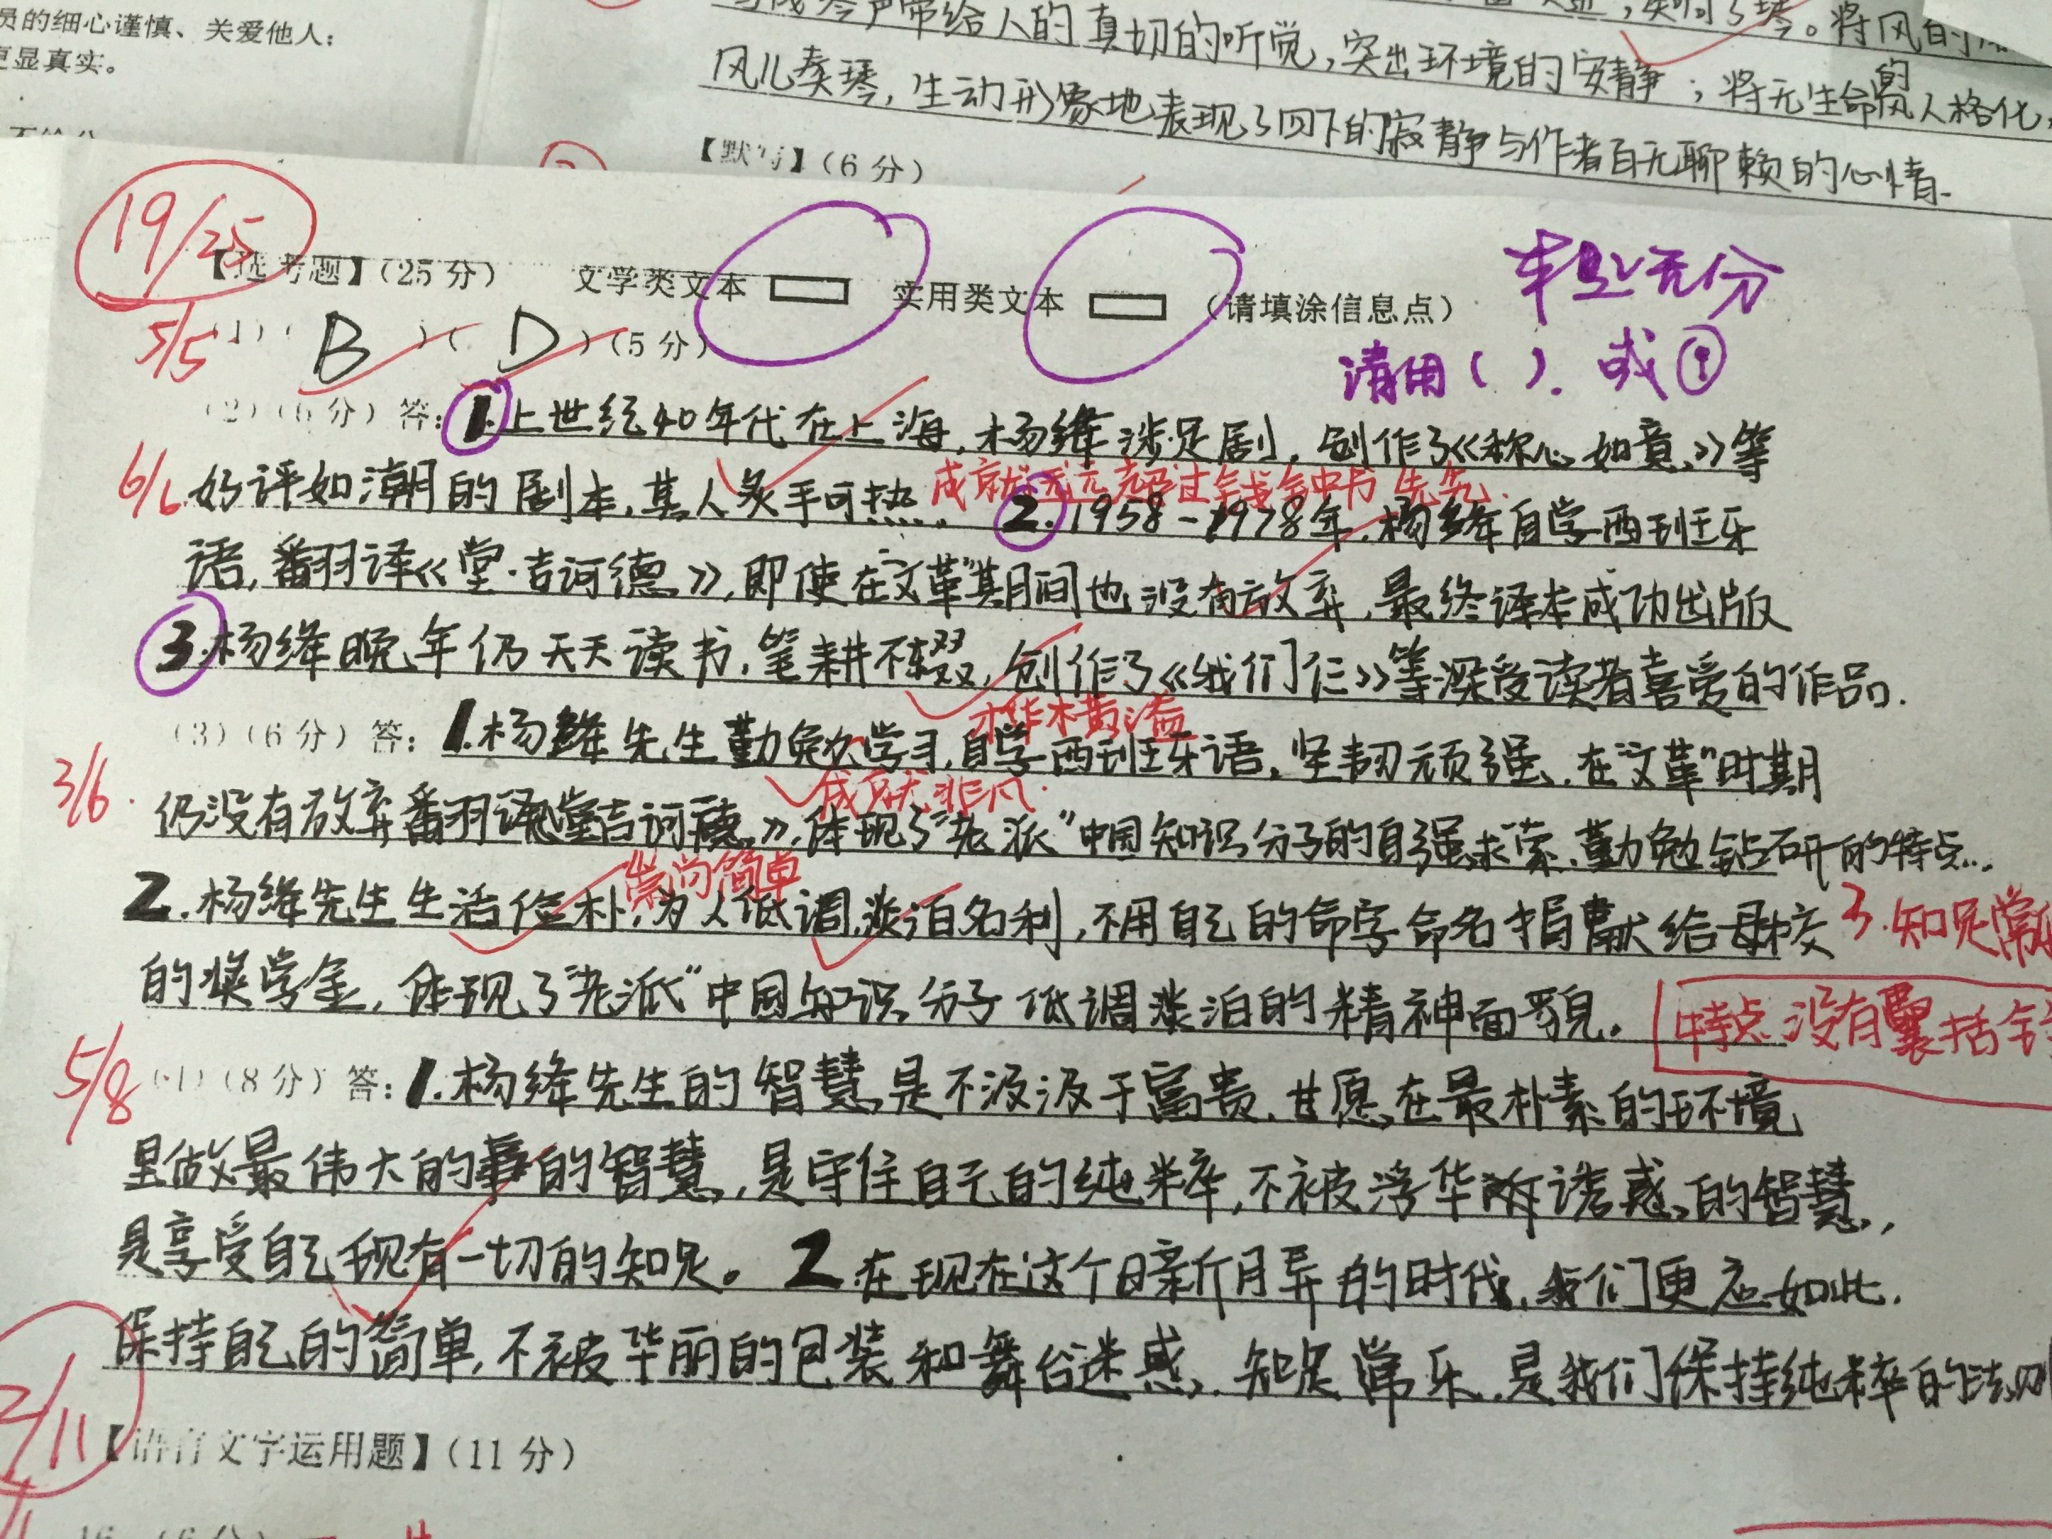 员的细心谨慎、关爱他人；
更显真实。
带给人的真切的听觉，突出环境的安静；将无生命的风人格化，
风儿奏琴，生动形象地表现了四下的寂静与作者百无聊赖的心情.
【默写】（6分）
19/25
【选考题】（25分） 文学类文本 实用类文本 （请填涂信息点）
无分
请用（ ）. 或①
5/5 (1)（B）（D）（5分）
(2)（6分）答：1.上世纪40年代在上海,杨绛涉足剧，创作了《称心如意》等
6/6 好评如潮的剧本,其人炙手可热. 2. 1958-1978年,杨绛自学西班牙
语,翻译《堂·吉诃德》,即使在"文革"期间也没有放弃,最终译本成功出版
3.杨绛晚年仍天天读书,笔耕不辍,创作了《我们仨》等深受读者喜爱的作品.
才华横溢
(3)（6分）答：1.杨绛先生勤勉学习,自学西班牙语,坚韧顽强,在"文革"时期
3/6. 成就非凡.
仍没有放弃翻译《堂吉诃德》,体现了"老派"中国知识分子的自强求索,勤勉钻研的特点..
崇尚简单
2.杨绛先生生活俭朴,为人低调,淡泊名利,不用自己的命字命名捐献给母校
3.知足常
的奖学金,体现了"老派"中国知识分子低调淡泊的精神面貌.
特点没有囊括全
5/8 （8分）答：1.杨绛先生的智慧是不汲汲于富贵,甘愿在最朴素的环境
里做最伟大的事的智慧,是守住自己的纯粹,不被浮华所诱惑的智慧,
是享受自己现有一切的知足。 2.在现在这个日新月异的时代,我们更应如此.
保持自己的简单,不被华丽的包装和舞台迷惑.知足常乐,是我们保持纯粹的法则
2/11
【语言文字运用题】（11分）